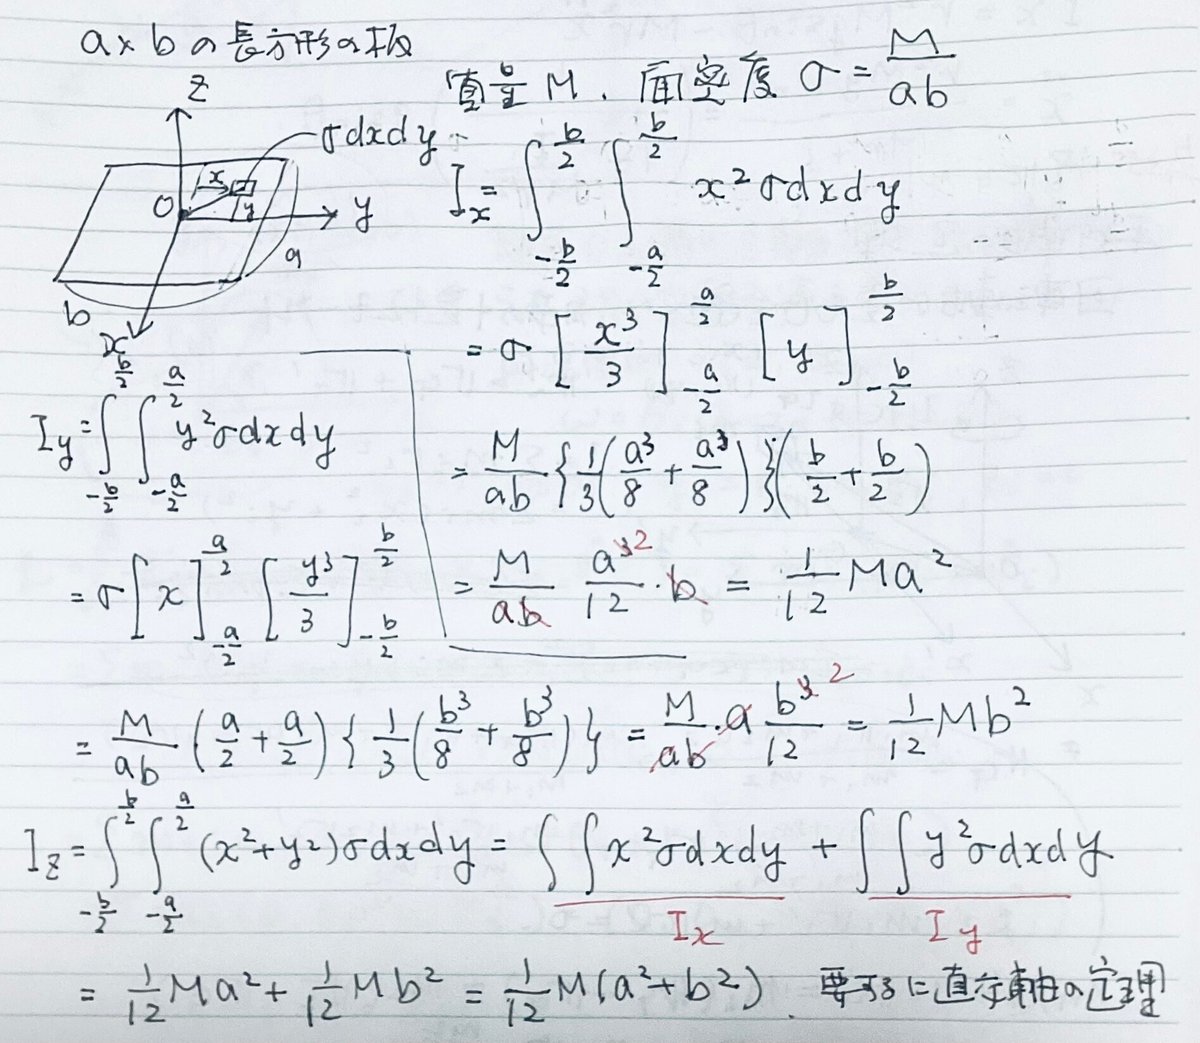 a×bの長方形の板
質量M、面密度 σ = M/ab
z
σdxdy
x
O y y
a
b
x
I_x = ∫_{-b/2}^{b/2} ∫_{-a/2}^{b/2} x²σdxdy
= σ [x³/3]_{-a/2}^{a/2} [y]_{-b/2}^{b/2}
= M/ab {1/3(a³/8 + a³/8)}(b/2 + b/2)
= M/ab a³/12 ・b = 1/12 Ma²
2
I_y = ∫_{-b/2}^{b/2} ∫_{-a/2}^{a/2} y²σdxdy
= σ [x]_{-a/2}^{a/2} [y³/3]_{-b/2}^{b/2}
= M/ab (a/2 + a/2) {1/3(b³/8 + b³/8)} = M/ab ・a b³/12 = 1/12 Mb²
2
I_z = ∫_{-b/2}^{b/2} ∫_{-a/2}^{a/2} (x²+y²)σdxdy = ∫∫x²σdxdy + ∫∫y²σdxdy
I_x I_y
= 1/12 Ma² + 1/12 Mb² = 1/12 M(a²+b²). 要するに直交軸の定理